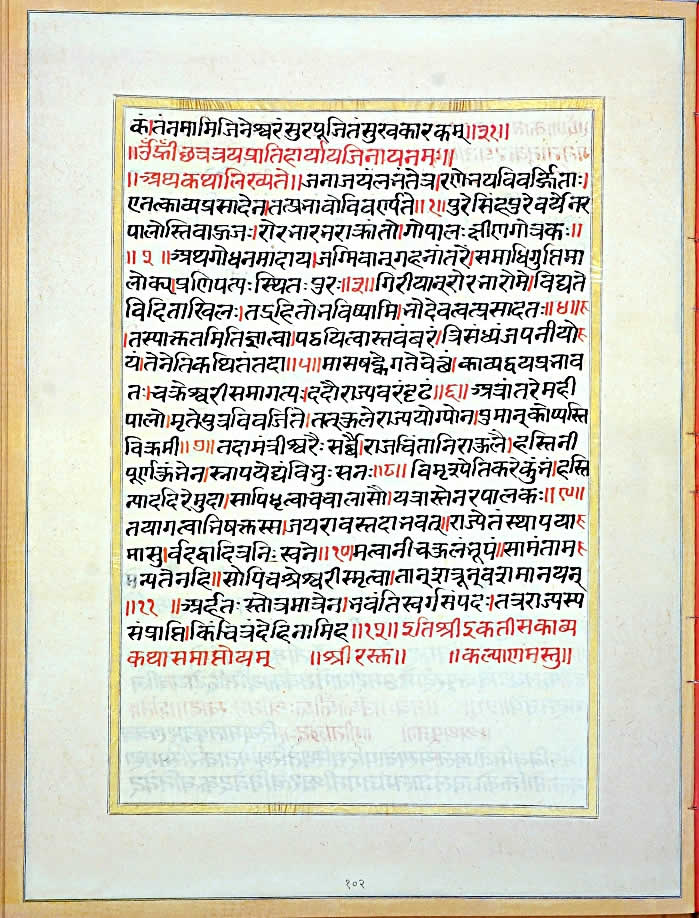 कं।तंनमामिजिनेश्वरंसुरपूजितंसुखकारकम्॥३१॥
॥उँह्रींछत्रत्रयप्रातिहार्यायजिनायनमः॥
॥अथकथालिख्यते॥जनाजयंलभंतेत्र।रणेभयविवर्जिताः।
एतत्काव्यप्रसादेन।तत्प्रभावोविवर्ण्यते॥१॥पुरेसिंहपुरेवर्येनर
पालोस्तिबाऊजः।रोरभारभराक्रांतो।गोपालःक्षीणगोत्रकः॥
॥२॥अथगोधनमादाय।जग्मिवान्गहनांतरे।समाधिगुप्तिमा
लोक्य।प्रणिपत्यःस्थितःपुरः॥३॥गिरीयान्रोरभारोमे।विद्यते
विदिताखिलः।तद्रहितोभविष्यामि।भोदेवत्वत्प्रसादतः॥४॥
तस्याकूतमितिज्ञात्वा।पठयित्वास्तवंबरं।त्रिसंध्यंजपनीयो
यं।तेनेतिकथितंतदा॥५॥मासषट्केगतेचेत्थं।काव्यद्वयप्रभाव
तः।चक्रेश्वरीसमागत्यःददौराज्यवरंदृढं॥६॥अत्रांतरेमही
पालो।मृतेपुत्रविवर्जिते।तत्कुलेराज्ययोग्योन।पुमान्कोप्यस्ति
विक्रमी॥७॥तदामंत्रीश्वरैःसर्वै।राजचिंताभिराऊलै।हस्तिनी
पूर्णकुंभेन।स्नापयेद्यंविभुःसनः॥८॥विमृश्येतिकरेकुंभं।हस्ति
न्याददिरेमुदा।सापिधृत्वाचचालासौ।यत्रास्तेनरपालकः॥९॥
तयागत्वाभिषक्तस्स।जयरावस्तदाभवत्।राज्येतंस्थापया
मासु।र्वदद्वादित्रनिःस्वने॥१०॥मत्वानीचकुलंभूपं।सामंताम
न्यतेनहि।सोपिचश्रेश्वरीस्मृत्वा।तान्शत्रून्वशमानयन्
॥११॥अर्हतःस्तोत्रमात्रेन।भवंतिस्वर्गसंपदः।तत्रराज्यस्प
संप्राप्ति।किंचित्रंदेहिनामिह॥१२॥इतिश्रीइकतीसकाव्य
कथासमाप्तोयम् ॥श्रीरस्तु॥ ॥कल्याणमस्तु॥
१०२